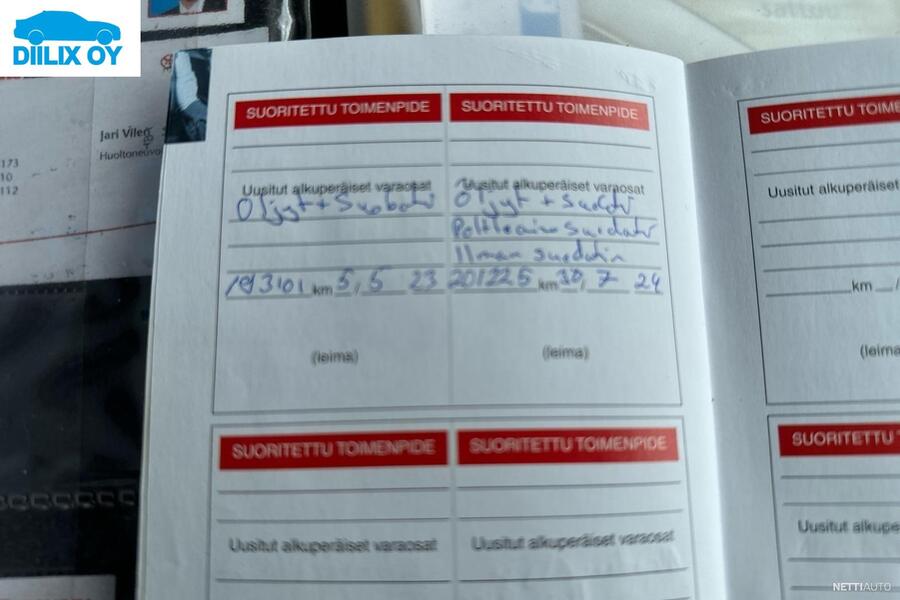 DIILIX OY
Jari Vileń
Huoltoneuvo
173
10
112
SUORITETTU TOIMENPIDE
Uusitut alkuperäiset varaosat
Öljyt + Suodatin
193101 km 5, 5 23
(leima)
SUORITETTU TOIMENPIDE
Uusitut alkuperäiset varaosat
Öljyt + Suodatin
Polttoaine suodatin
Ilman suodatin
201225 km 30, 7 24
(leima)
SUORITETTU TOIME
Uusitut alkuperäise
km /
(leima
SUORITETTU TOIMENPIDE
Uusitut alkuperäiset varaosat
SUORITETTU TOIMENPIDE
Uusitut alkuperäiset varaosat
SUORITETTU T
Uusitut alkupe
NETTIAUTO